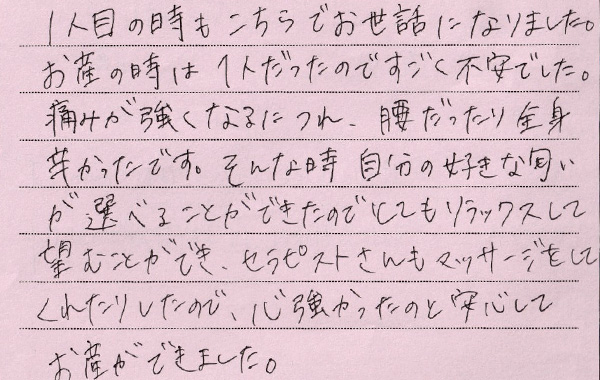 1人目の時もこちらでお世話になりました。
お産の時は1人だったのですごく不安でした。
痛みが強くなるにつれ、腰だったり全身
辛かったです。そんな時自分の好きな匂い
が選べることができたのでとてもリラックスして
望むことができ、セラピストさんもマッサージをして
くれたりしたので、心強かったのと安心して
お産ができました。